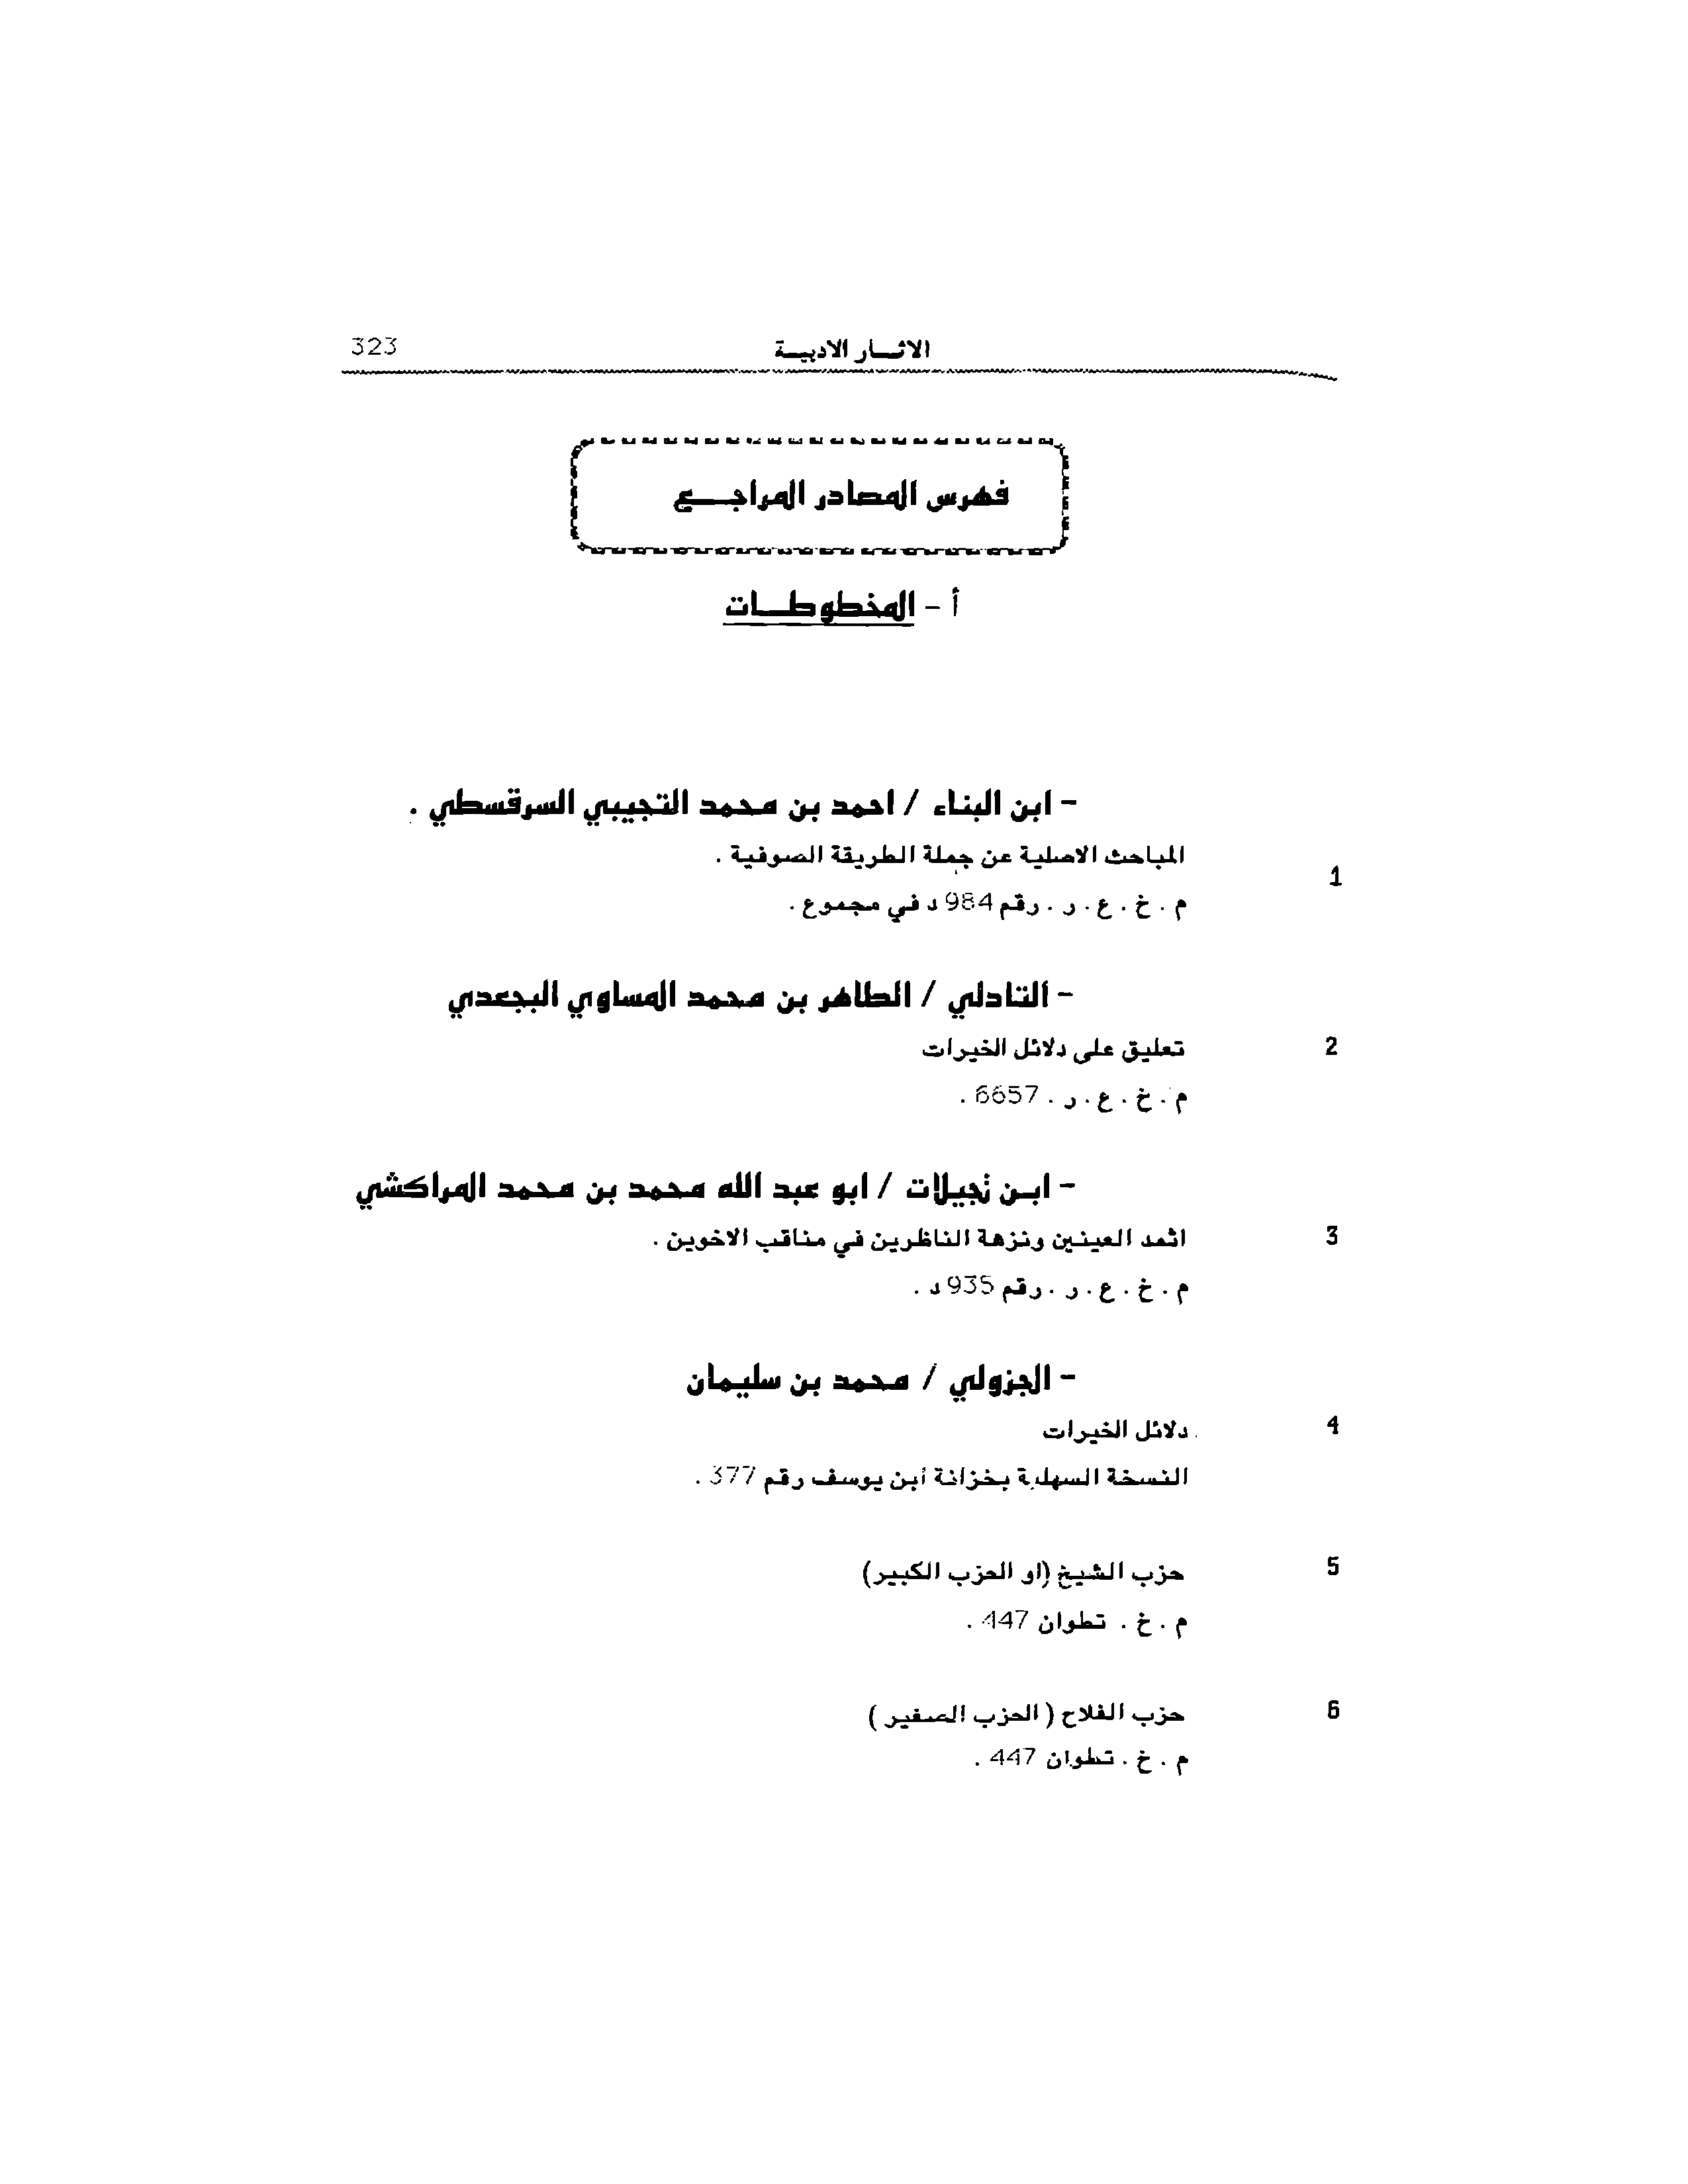 الاثـــار الادبيـــة 323
فهرس المصادر المراجـــع
أ - المخطوطـــات
- ابن البناء / احمد بن محمد التجيبي السرقسطي .
المباحث الاصلية عن جملة الطريقة الصوفية .
1
م . خ . ع . ر . رقم 984 د في مجموع .
- التادلي / الطاهر بن محمد المساوي البجعدي
2 تعليق على دلائل الخيرات
م . خ . ع . ر . 6657 .
- ابـن تجيلات / ابو عبد الله محمد بن محمد المراكشي
3 اثمد العينين ونزهة الناظرين في مناقب الاخوين .
م . خ . ع . ر . رقم 935 د .
- الجزولي / محمد بن سليمان
4 دلائل الخيرات
النسخة السهلية بخزانة ابن يوسف رقم 377 .
5 حزب الشيخ (او الحزب الكبير)
م . خ . تطوان 447 .
6 حزب الفلاح ( الحزب الصغير )
م . خ . تطوان 447 .